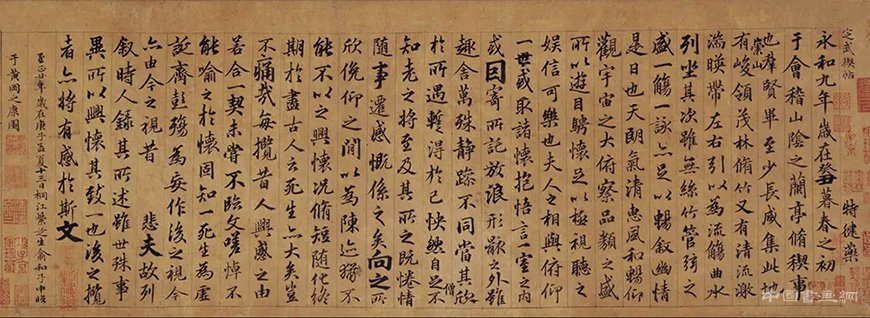 定武禊帖
特健藥
永和九年歲在癸丑暮春之初
于會稽山陰之蘭亭脩稧事
也群賢畢至少長咸集此地
崇山
有峻領茂林脩竹又有清流激
湍暎帶左右引以為流觴曲水
列坐其次雖無絲竹管弦之
盛一觴一詠亦足以暢敘幽情
是日也天朗氣清惠風和暢仰
觀宇宙之大俯察品類之盛
所以遊目騁懷足以極視聽之
娛信可樂也夫人之相與俯仰
一世或取諸懷抱悟言一室之內
或因寄所託放浪形骸之外雖
趣舍萬殊靜躁不同當其欣
於所遇蹔得於己怏然自足不
僧
知老之將至及其所之既惓情
隨事遷感慨係之矣向之所
欣俛仰之閒以為陳迹猶不
能不以之興懷況脩短隨化終
期於盡古人云死生亦大矣豈
不痛哉每攬昔人興感之由
若合一契未嘗不臨文嗟悼不
能喻之於懷固知一死生為虛
誕齊彭殤為妄作後之視今
亦由今之視昔悲夫故列
敘時人錄其所述雖世殊事
異所以興懷其致一也後之攬
者亦將有感於斯文
至正廿年歲在庚子孟夏十三日桐江紫芝生俞和子中臨
于黃岡之寓閣
中国書畫網